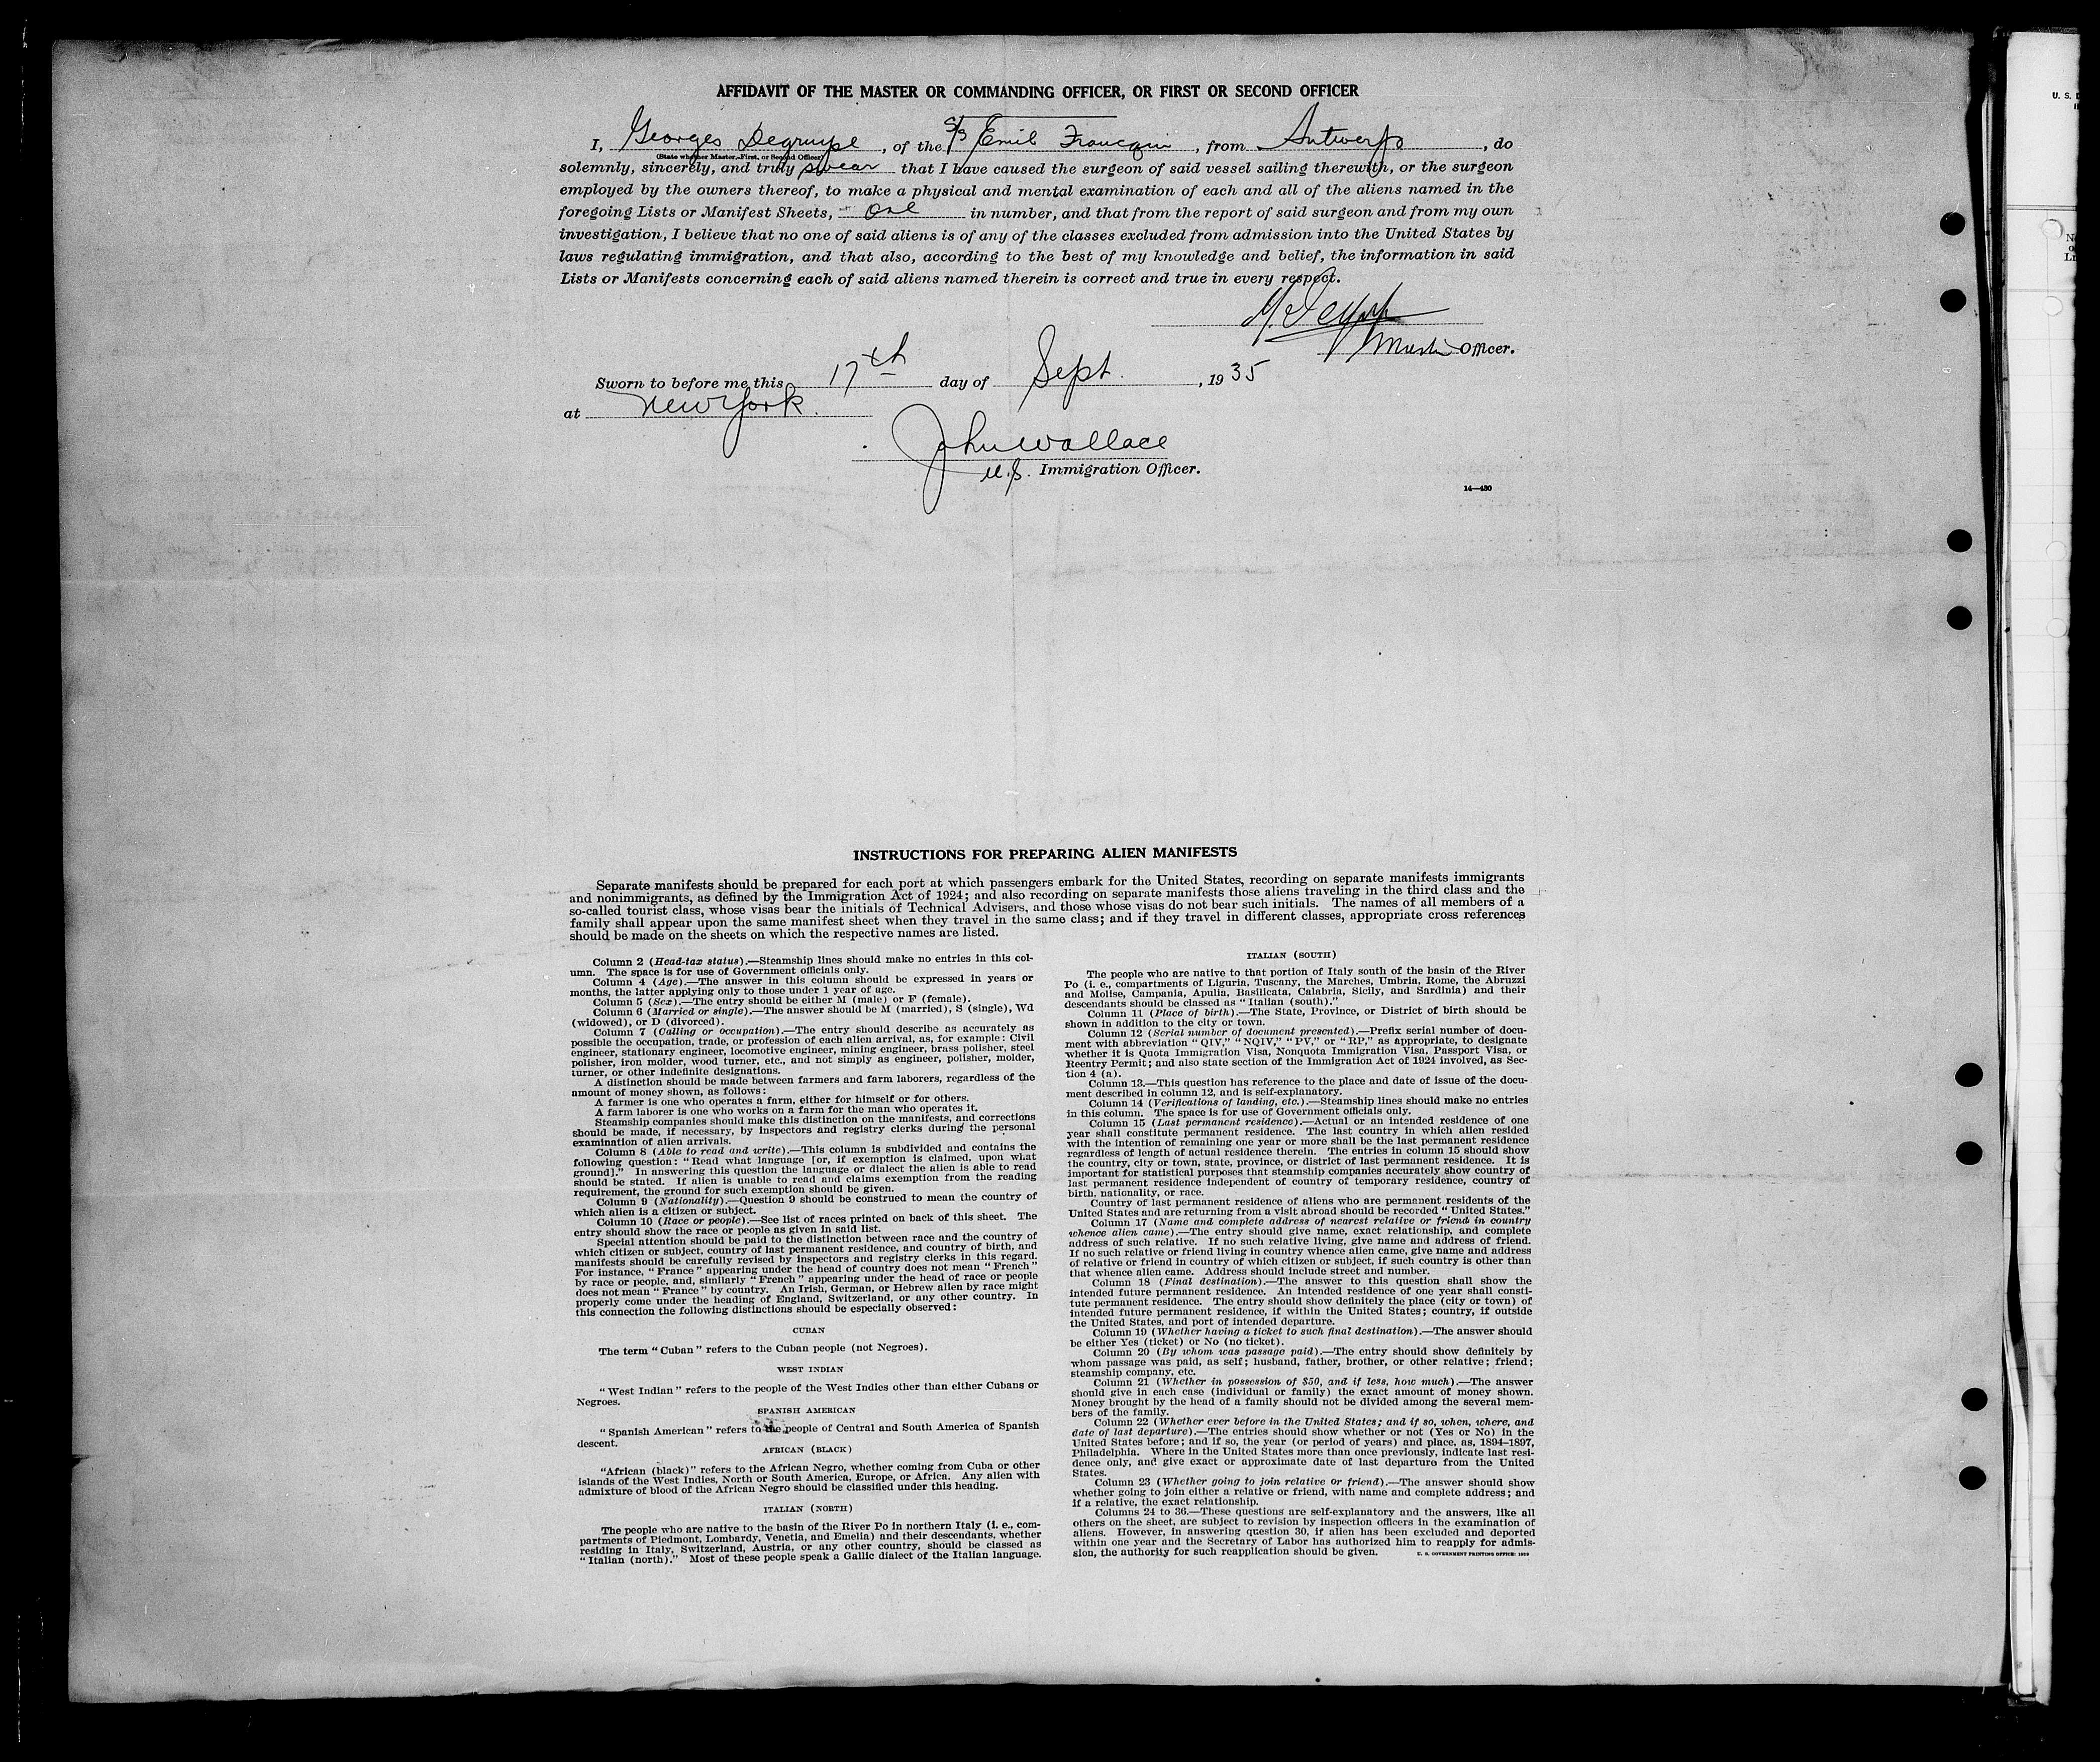 AFFIDAVIT OF THE MASTER OR COMMANDING OFFICER, OR FIRST OR SECOND OFFICER
I, Georges Degruype, of the S/S Emil Francqui, from Antwerp, do
(State whether Master, First, or Second Officer)
solemnly, sincerely, and truly swear that I have caused the surgeon of said vessel sailing therewith, or the surgeon
employed by the owners thereof, to make a physical and mental examination of each and all of the aliens named in the
foregoing Lists or Manifest Sheets, one in number, and that from the report of said surgeon and from my own
investigation, I believe that no one of said aliens is of any of the classes excluded from admission into the United States by
laws regulating immigration, and that also, according to the best of my knowledge and belief, the information in said
Lists or Manifests concerning each of said aliens named therein is correct and true in every respect.
Master Officer.
Sworn to before me this 17th day of Sept., 1935
at New York.
John Wallace
U.S. Immigration Officer.
14—430
INSTRUCTIONS FOR PREPARING ALIEN MANIFESTS
Separate manifests should be prepared for each port at which passengers embark for the United States, recording on separate manifests immigrants
and nonimmigrants, as defined by the Immigration Act of 1924; and also recording on separate manifests those aliens traveling in the third class and the
so-called tourist class, whose visas bear the initials of Technical Advisers, and those whose visas do not bear such initials. The names of all members of a
family shall appear upon the same manifest sheet when they travel in the same class; and if they travel in different classes, appropriate cross references
should be made on the sheets on which the respective names are listed.
Column 2 (Head-tax status).—Steamship lines should make no entries in this col-
umn. The space is for use of Government officials only.
Column 4 (Age).—The answer in this column should be expressed in years or
months, the latter applying only to those under 1 year of age.
Column 5 (Sex).—The entry should be either M (male) or F (female).
Column 6 (Married or single).—The answer should be M (married), S (single), Wd
(widowed), or D (divorced).
Column 7 (Calling or occupation).—The entry should describe as accurately as
possible the occupation, trade, or profession of each alien arrival, as, for example: Civil
engineer, stationary engineer, locomotive engineer, mining engineer, brass polisher, steel
polisher, iron molder, wood turner, etc., and not simply as engineer, polisher, molder,
turner, or other indefinite designations.
A distinction should be made between farmers and farm laborers, regardless of the
amount of money shown, as follows:
A farmer is one who operates a farm, either for himself or for others.
A farm laborer is one who works on a farm for the man who operates it.
Steamship companies should make this distinction on the manifests, and corrections
should be made, if necessary, by inspectors and registry clerks during the personal
examination of alien arrivals.
Column 8 (Able to read and write).—This column is subdivided and contains the
following question: "Read what language [or, if exemption is claimed, upon what
ground]." In answering this question the language or dialect the alien is able to read
should be stated. If alien is unable to read and claims exemption from the reading
requirement, the ground for such exemption should be given.
Column 9 (Nationality).—Question 9 should be construed to mean the country of
which alien is a citizen or subject.
Column 10 (Race or people).—See list of races printed on back of this sheet. The
entry should show the race or people as given in said list.
Special attention should be paid to the distinction between race and the country of
which citizen or subject, country of last permanent residence, and country of birth, and
manifests should be carefully revised by inspectors and registry clerks in this regard.
For instance, "France" appearing under the head of country does not mean "French"
by race or people, and, similarly "French" appearing under the head of race or people
does not mean "France" by country. An Irish, German, or Hebrew alien by race might
properly come under the heading of England, Switzerland, or any other country. In
this connection the following distinctions should be especially observed:
CUBAN
The term "Cuban" refers to the Cuban people (not Negroes).
WEST INDIAN
"West Indian" refers to the people of the West Indies other than either Cubans or
Negroes.
SPANISH AMERICAN
"Spanish American" refers to the people of Central and South America of Spanish
descent.
AFRICAN (BLACK)
"African (black)" refers to the African Negro, whether coming from Cuba or other
islands of the West Indies, North or South America, Europe, or Africa. Any alien with
admixture of blood of the African Negro should be classified under this heading.
ITALIAN (NORTH)
The people who are native to the basin of the River Po in northern Italy (i. e., com-
partments of Piedmont, Lombardy, Venetia, and Emelia) and their descendants, whether
residing in Italy, Switzerland, Austria, or any other country, should be classed as
"Italian (north)." Most of these people speak a Gallic dialect of the Italian language.
ITALIAN (SOUTH)
The people who are native to that portion of Italy south of the basin of the River
Po (i. e., compartments of Liguria, Tuscany, the Marches, Umbria, Rome, the Abruzzi
and Molise, Campania, Apulia, Basilicata, Calabria, Sicily, and Sardinia) and their
descendants should be classed as "Italian (south)."
Column 11 (Place of birth).—The State, Province, or District of birth should be
shown in addition to the city or town.
Column 12 (Serial number of document presented).—Prefix serial number of docu-
ment with abbreviation "QIV," "NQIV," "PV," or "RP," as appropriate, to designate
whether it is Quota Immigration Visa, Nonquota Immigration Visa, Passport Visa, or
Reentry Permit; and also state section of the Immigration Act of 1924 involved, as Sec-
tion 4 (a).
Column 13.—This question has reference to the place and date of issue of the docu-
ment described in column 12, and is self-explanatory.
Column 14 (Verifications of landing, etc.).—Steamship lines should make no entries
in this column. The space is for use of Government officials only.
Column 15 (Last permanent residence).—Actual or an intended residence of one
year shall constitute permanent residence. The last country in which alien resided
with the intention of remaining one year or more shall be the last permanent residence
regardless of length of actual residence therein. The entries in column 15 should show
the country, city or town, state, province, or district of last permanent residence. It is
important for statistical purposes that steamship companies accurately show country of
last permanent residence independent of country of temporary residence, country of
birth, nationality, or race.
Country of last permanent residence of aliens who are permanent residents of the
United States and are returning from a visit abroad should be recorded "United States."
Column 17 (Name and complete address of nearest relative or friend in country
whence alien came).—The entry should give name, exact relationship, and complete
address of such relative. If no such relative living, give name and address of friend.
If no such relative or friend living in country whence alien came, give name and address
of relative or friend in country of which citizen or subject, if such country is other than
that whence alien came. Address should include street and number.
Column 18 (Final destination).—The answer to this question shall show the
intended future permanent residence. An intended residence of one year shall consti-
tute permanent residence. The entry should show definitely the place (city or town) of
intended future permanent residence, if within the United States; country, if outside
the United States, and port of intended departure.
Column 19 (Whether having a ticket to such final destination).—The answer should
be either Yes (ticket) or No (no ticket).
Column 20 (By whom was passage paid).—The entry should show definitely by
whom passage was paid, as self; husband, father, brother, or other relative; friend;
steamship company, etc.
Column 21 (Whether in possession of $50, and if less, how much).—The answer
should give in each case (individual or family) the exact amount of money shown.
Money brought by the head of a family should not be divided among the several mem-
bers of the family.
Column 22 (Whether ever before in the United States; and if so, when, where, and
date of last departure).—The entries should show whether or not (Yes or No) in the
United States before; and if so, the year (or period of years) and place, as, 1894–1897,
Philadelphia. Where in the United States more than once previously, indicate last resi-
dence only, and give exact or approximate date of last departure from the United
States.
Column 23 (Whether going to join relative or friend).—The answer should show
whether going to join either a relative or friend, with name and complete address; and
if a relative, the exact relationship.
Columns 24 to 36.—These questions are self-explanatory and the answers, like all
others on the sheet, are subject to revision by inspection officers in the examination of
aliens. However, in answering question 30, if alien has been excluded and deported
within one year and the Secretary of Labor has authorized him to reapply for admis-
sion, the authority for such reapplication should be given.
U. S. GOVERNMENT PRINTING OFFICE: